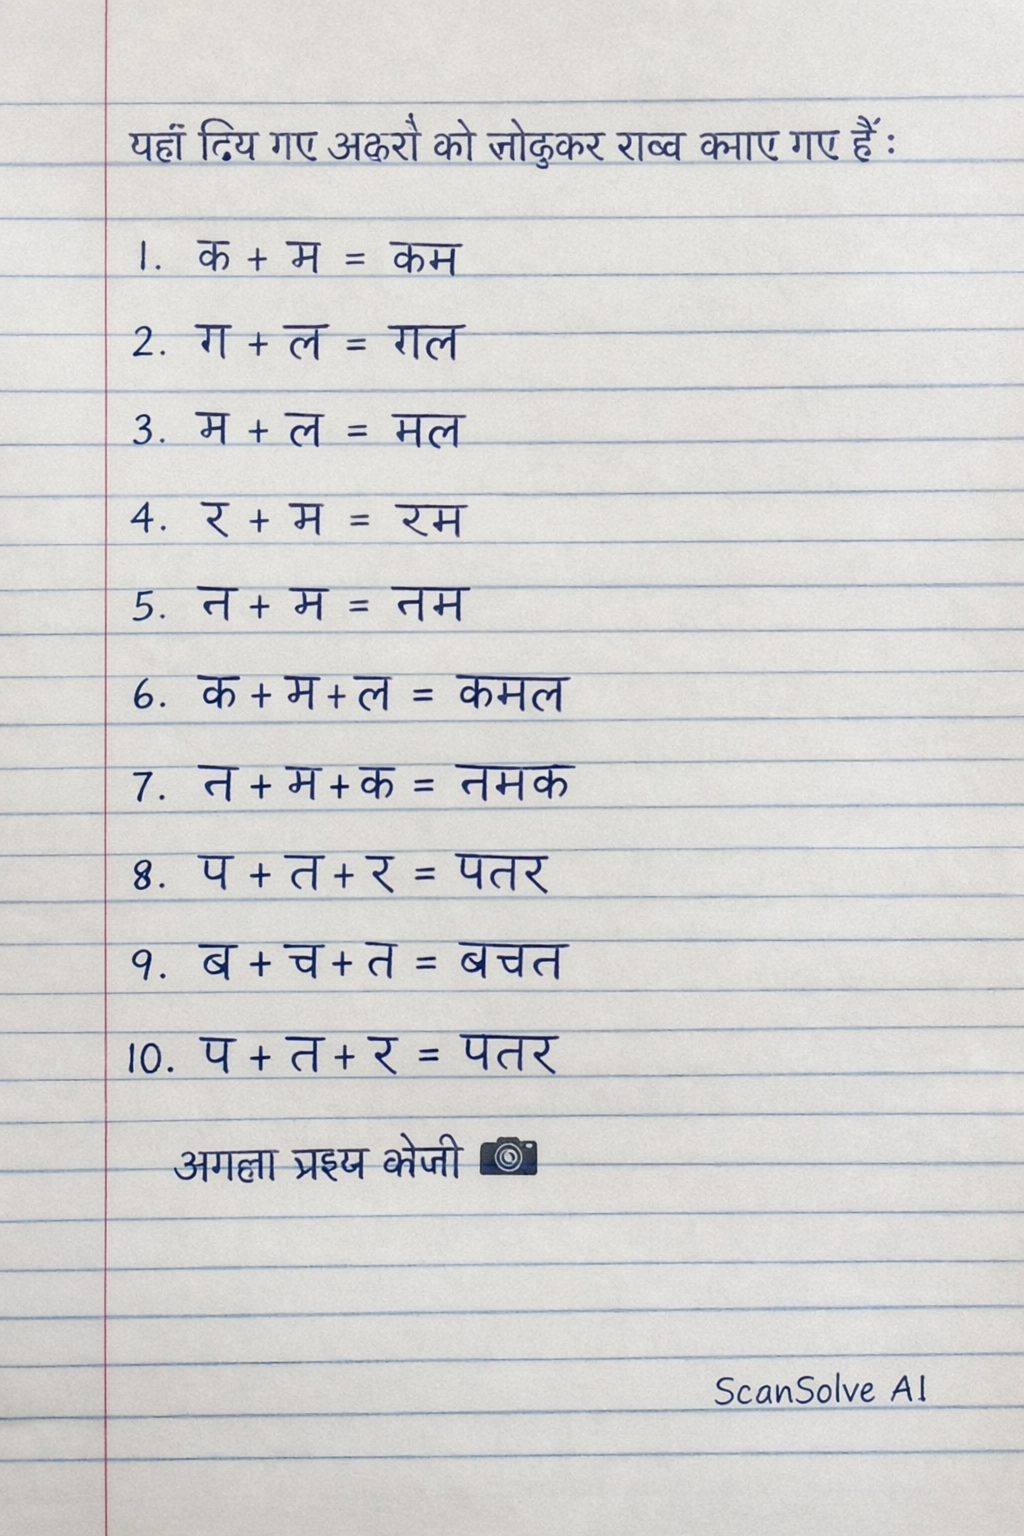 यहाँ दिय गए अक्षरौ को जोदुकर राब्व बनाए गए हैं :
1. क + म = कम
2. ग + ल = गल
3. म + ल = मल
4. र + म = रम
5. न + म = नम
6. क + म + ल = कमल
7. न + म + क = नमक
8. प + त + र = पतर
9. ब + च + त = बचत
10. प + त + र = पतर
अगला
ScanSolve AI